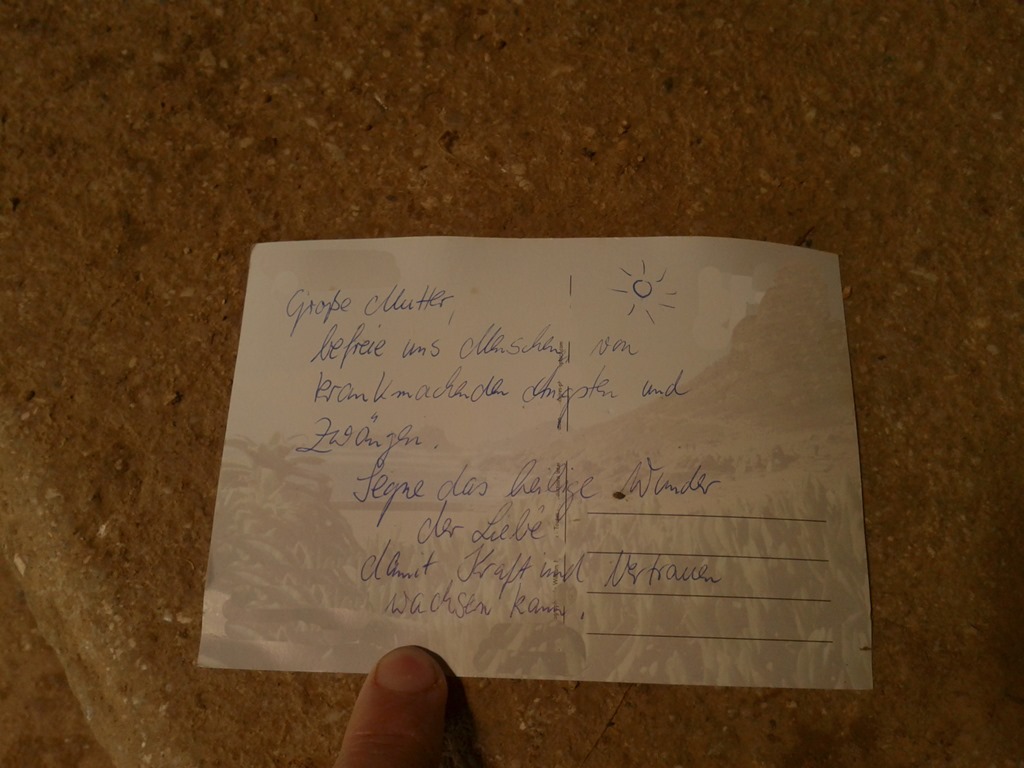 Große Mutter,
befreie uns Menschen von
krankmachenden Ängsten und
Zwängen.
Segne das heilige Wunder
der Liebe
damit Kraft und Vertrauen
wachsen kann.